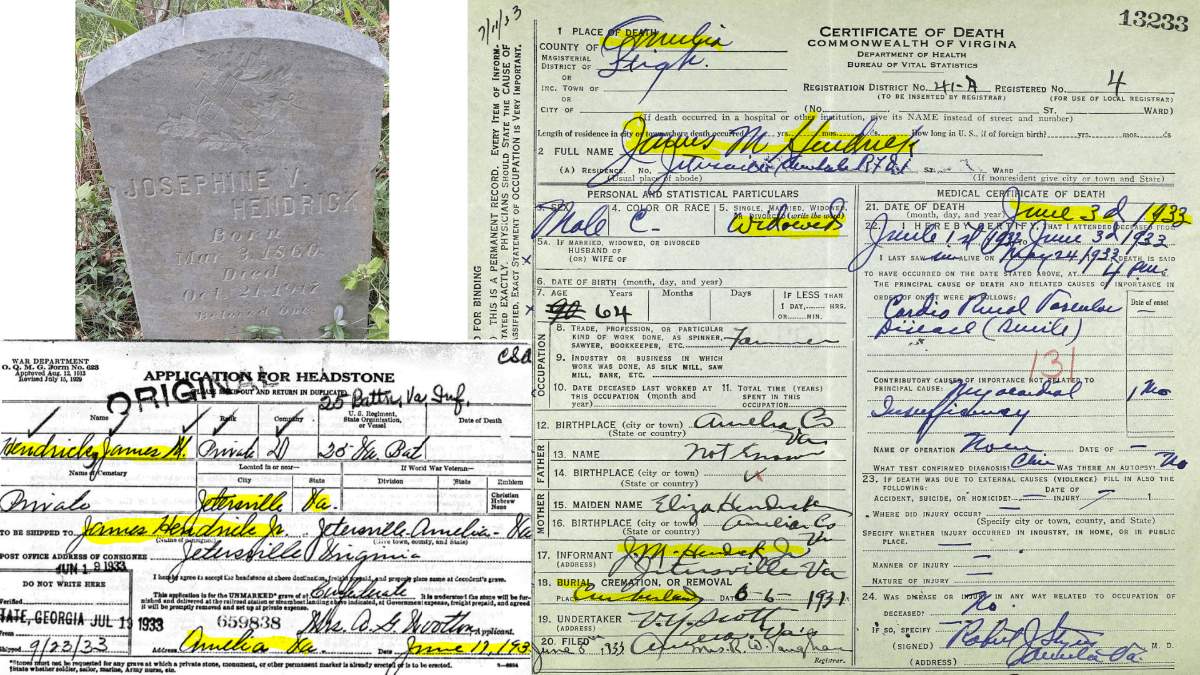 JOSEPHINE V.
HENDRICK
Born
Mar. 3.
Died
Oct.
Beloved One
WAR DEPARTMENT
O. Q. M. G. Form No. 623
Approved Aug. 12, 1913
Revised July 15, 1929
CSA
APPLICATION FOR HEADSTONE
ORIGINAL
OUT AND RETURN IN DUPLICATE
25 Battn, Va, Inf,
Name
Rank
Company
U. S. Regiment, State Organization, or Vessel
Date of Death
Hendrick, James M.
Private
D
25 Va Bat
Name of Cemetery
Located in or near—
If World War Veteran—
City
State
Division
Emblem
Christian
Hebrew
None
Private
Jetersville
Va.
TO BE SHIPPED TO James Hendrick Jr. Jetersville-Amelia-Va
(town, county, and State)
POST OFFICE ADDRESS OF CONSIGNEE Jetersville Virginia
JUN 19 1933
DO NOT WRITE HERE
I hereby agree to accept the headstone at above destination, freight prepaid, and properly place same at decedent's grave.
This application is for the UNMARKED grave of Confederate
It is understood the stone will be furnished and delivered at the railroad station or steamboat landing above indicated, at Government expense, freight prepaid, and agreed it will be promptly removed and set up at private expense.
Verified
TATE, GEORGIA JUL 19 1933
659838
Mrs. A G Wootton Applicant.
Shipped 9/23/33
Address Amelia Va.
Date June 17, 193
*Stones must not be requested for any grave at which a private stone, monument, or other permanent marker is already erected or is to be erected.
State whether soldier, sailor, marine, Army nurse, etc.
7/11/33
13233
CERTIFICATE OF DEATH
COMMONWEALTH OF VIRGINIA
DEPARTMENT OF HEALTH
BUREAU OF VITAL STATISTICS
1 PLACE OF DEATH
COUNTY OF Amelia
MAGISTERIAL DISTRICT OF Leigh.
OR
INC. TOWN OF
OR
CITY OF
REGISTRATION DISTRICT NO. 41-A REGISTERED NO. 4
(TO BE INSERTED BY REGISTRAR) (FOR USE OF LOCAL REGISTRAR)
(No. ST. WARD)
(If death occurred in a hospital or other institution, give its NAME instead of street and number)
Length of residence in city or town where death occurred yrs. mos. ds. How long in U. S., if of foreign birth? yrs. mos. ds
2 FULL NAME James M Hendrick
(A) RESIDENCE. No. ST. WARD
(Usual place of abode) (If nonresident give city or town and State)
PERSONAL AND STATISTICAL PARTICULARS
3. SEX Male
4. COLOR OR RACE C-
5. SINGLE, MARRIED, WIDOWED, OR DIVORCED (write the word) Widowed
5A. IF MARRIED, WIDOWED, OR DIVORCED
HUSBAND OF
(OR) WIFE OF
6. DATE OF BIRTH (month, day, and year)
7. AGE Years Months Days IF LESS THAN 1 DAY, HRS. OR MIN.
90 64
OCCUPATION
8. TRADE, PROFESSION, OR PARTICULAR KIND OF WORK DONE, AS SPINNER, SAWYER, BOOKKEEPER, ETC. Farmer
9. INDUSTRY OR BUSINESS IN WHICH WORK WAS DONE, AS SILK MILL, SAW MILL, BANK, ETC.
10. DATE DECEASED LAST WORKED AT THIS OCCUPATION (month and year)
11. TOTAL TIME (YEARS) SPENT IN THIS OCCUPATION
12. BIRTHPLACE (city or town) (State or country) Amelia Co Va
FATHER
13. NAME Not Known
14. BIRTHPLACE (city or town) (State or country)
MOTHER
15. MAIDEN NAME Eliza Hendrick
16. BIRTHPLACE (city or town) (State or country) Amelia Co Va
17. INFORMANT J. M. Hendrick
(ADDRESS) Jetersville Va
18. BURIAL, CREMATION, OR REMOVAL
PLACE Cumberland DATE 6-6-1931
19. UNDERTAKER V. Y. Scott
(ADDRESS) Amelia, Va
20. FILED June 8, 1933 Mrs. R. W. Vaughan
Registrar.
MEDICAL CERTIFICATE OF DEATH
21. DATE OF DEATH (month, day, and year) June 3d 1933
22. I HEREBY CERTIFY, THAT I ATTENDED DECEASED FROM
June 1st 1933 TO June 3d 1933
I LAST SAW ALIVE ON May 24 1933 DEATH IS SAID
TO HAVE OCCURRED ON THE DATE STATED ABOVE, AT 4 PM.
THE PRINCIPAL CAUSE OF DEATH AND RELATED CAUSES OF IMPORTANCE IN ORDER OF ONSET WERE AS FOLLOWS:
Date of onset
Cardio Renal Vascular
Disease (Senile)
131
CONTRIBUTORY CAUSES OF IMPORTANCE NOT RELATED TO PRINCIPAL CAUSE:
Myocardial 1 Mo
Insufficiency
NAME OF OPERATION None DATE OF
WHAT TEST CONFIRMED DIAGNOSIS? Clin WAS THERE AN AUTOPSY? No
23. IF DEATH WAS DUE TO EXTERNAL CAUSES (VIOLENCE) FILL IN ALSO THE FOLLOWING:
ACCIDENT, SUICIDE, OR HOMICIDE? DATE OF INJURY
WHERE DID INJURY OCCUR?
(Specify city or town, county, and State)
SPECIFY WHETHER INJURY OCCURRED IN INDUSTRY, IN HOME, OR IN PUBLIC PLACE.
MANNER OF INJURY
NATURE OF INJURY
24. WAS DISEASE OR INJURY IN ANY WAY RELATED TO OCCUPATION OF DECEASED? No.
IF SO, SPECIFY
(SIGNED) Robert J. M. D.
(ADDRESS) Amelia Va.